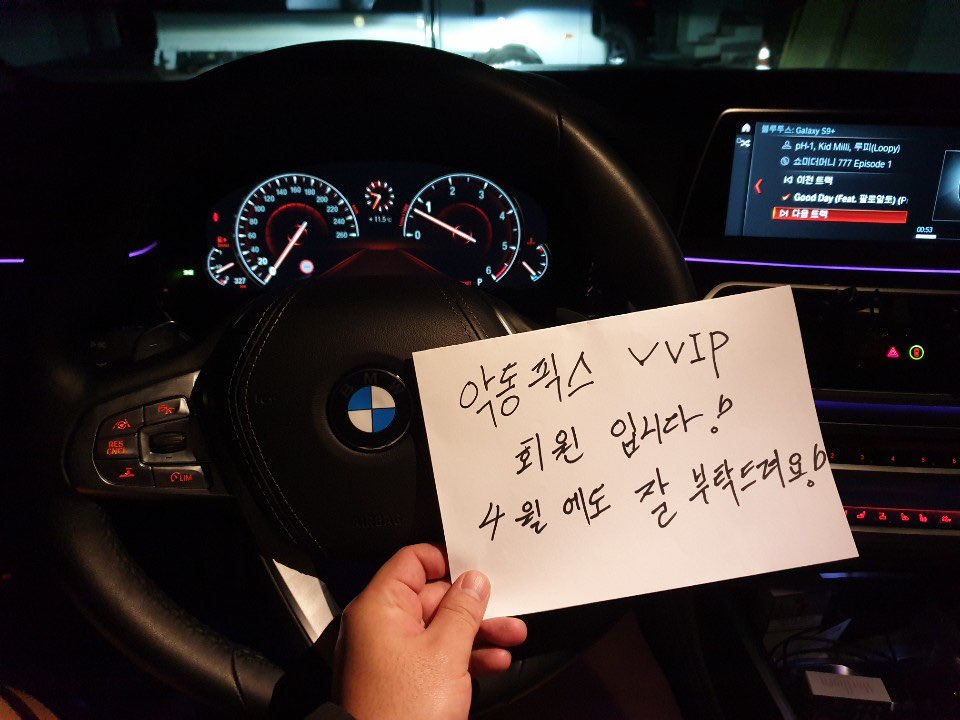 악동픽스 VVIP
회원 입니다!
4월에도 잘 부탁드려요!
블루투스: Galaxy S9+
pH-1, Kid Milli, 루피(Loopy)
쇼미더머니 777 Episode 1
이전 트랙
Good Day (Feat. 팔로알토) (P
다음 트랙
00:53
20 40 60 80 100 120 140 160 180 200 220 240 260
+11.5°C
0 1 2 3 4 5 6
P
327
BMW
RES
CNCL
LIM
AIRBAG